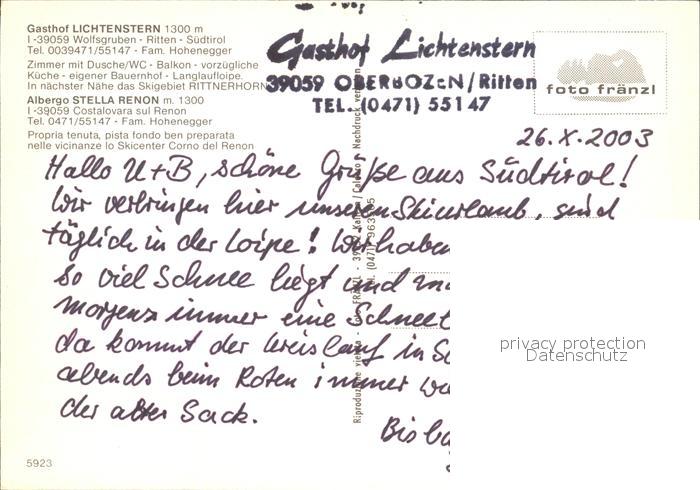 Gasthof LICHTENSTERN 1300 m
I -39059 Wolfsgruben - Ritten - Südtirol
Tel. 0039471/55147 - Fam. Hohenegger
Zimmer mit Dusche/WC - Balkon - vorzügliche
Küche - eigener Bauernhof - Langlaufloipe.
In nächster Nähe das Skigebiet RITTNERHORN
Albergo STELLA RENON m. 1300
I -39059 Costalovara sul Renon
Tel. 0471/55147 - Fam. Hohenegger
Propria tenuta, pista fondo ben preparata
nelle vicinanze lo Skicenter Corno del Renon
Gasthof Lichtenstern
39059 OBERBOZEN/Ritten
TEL. (0471) 55147
foto fränzl
26.X.2003
Hallo U+B, schöne Grüße aus Südtirol!
Wir verbringen hier unseren Skiurlaub, sind
täglich in der Loipe! Wir haben
so viel Schnee liegt und
morgens immer eine
da kommt der Kreislauf in
abends beim Roten immer
der alter Sack.
Bis
Riproduzione vietata - Foto FRÄNZL - Nachdruck verboten
privacy protection
Datenschutz
5923